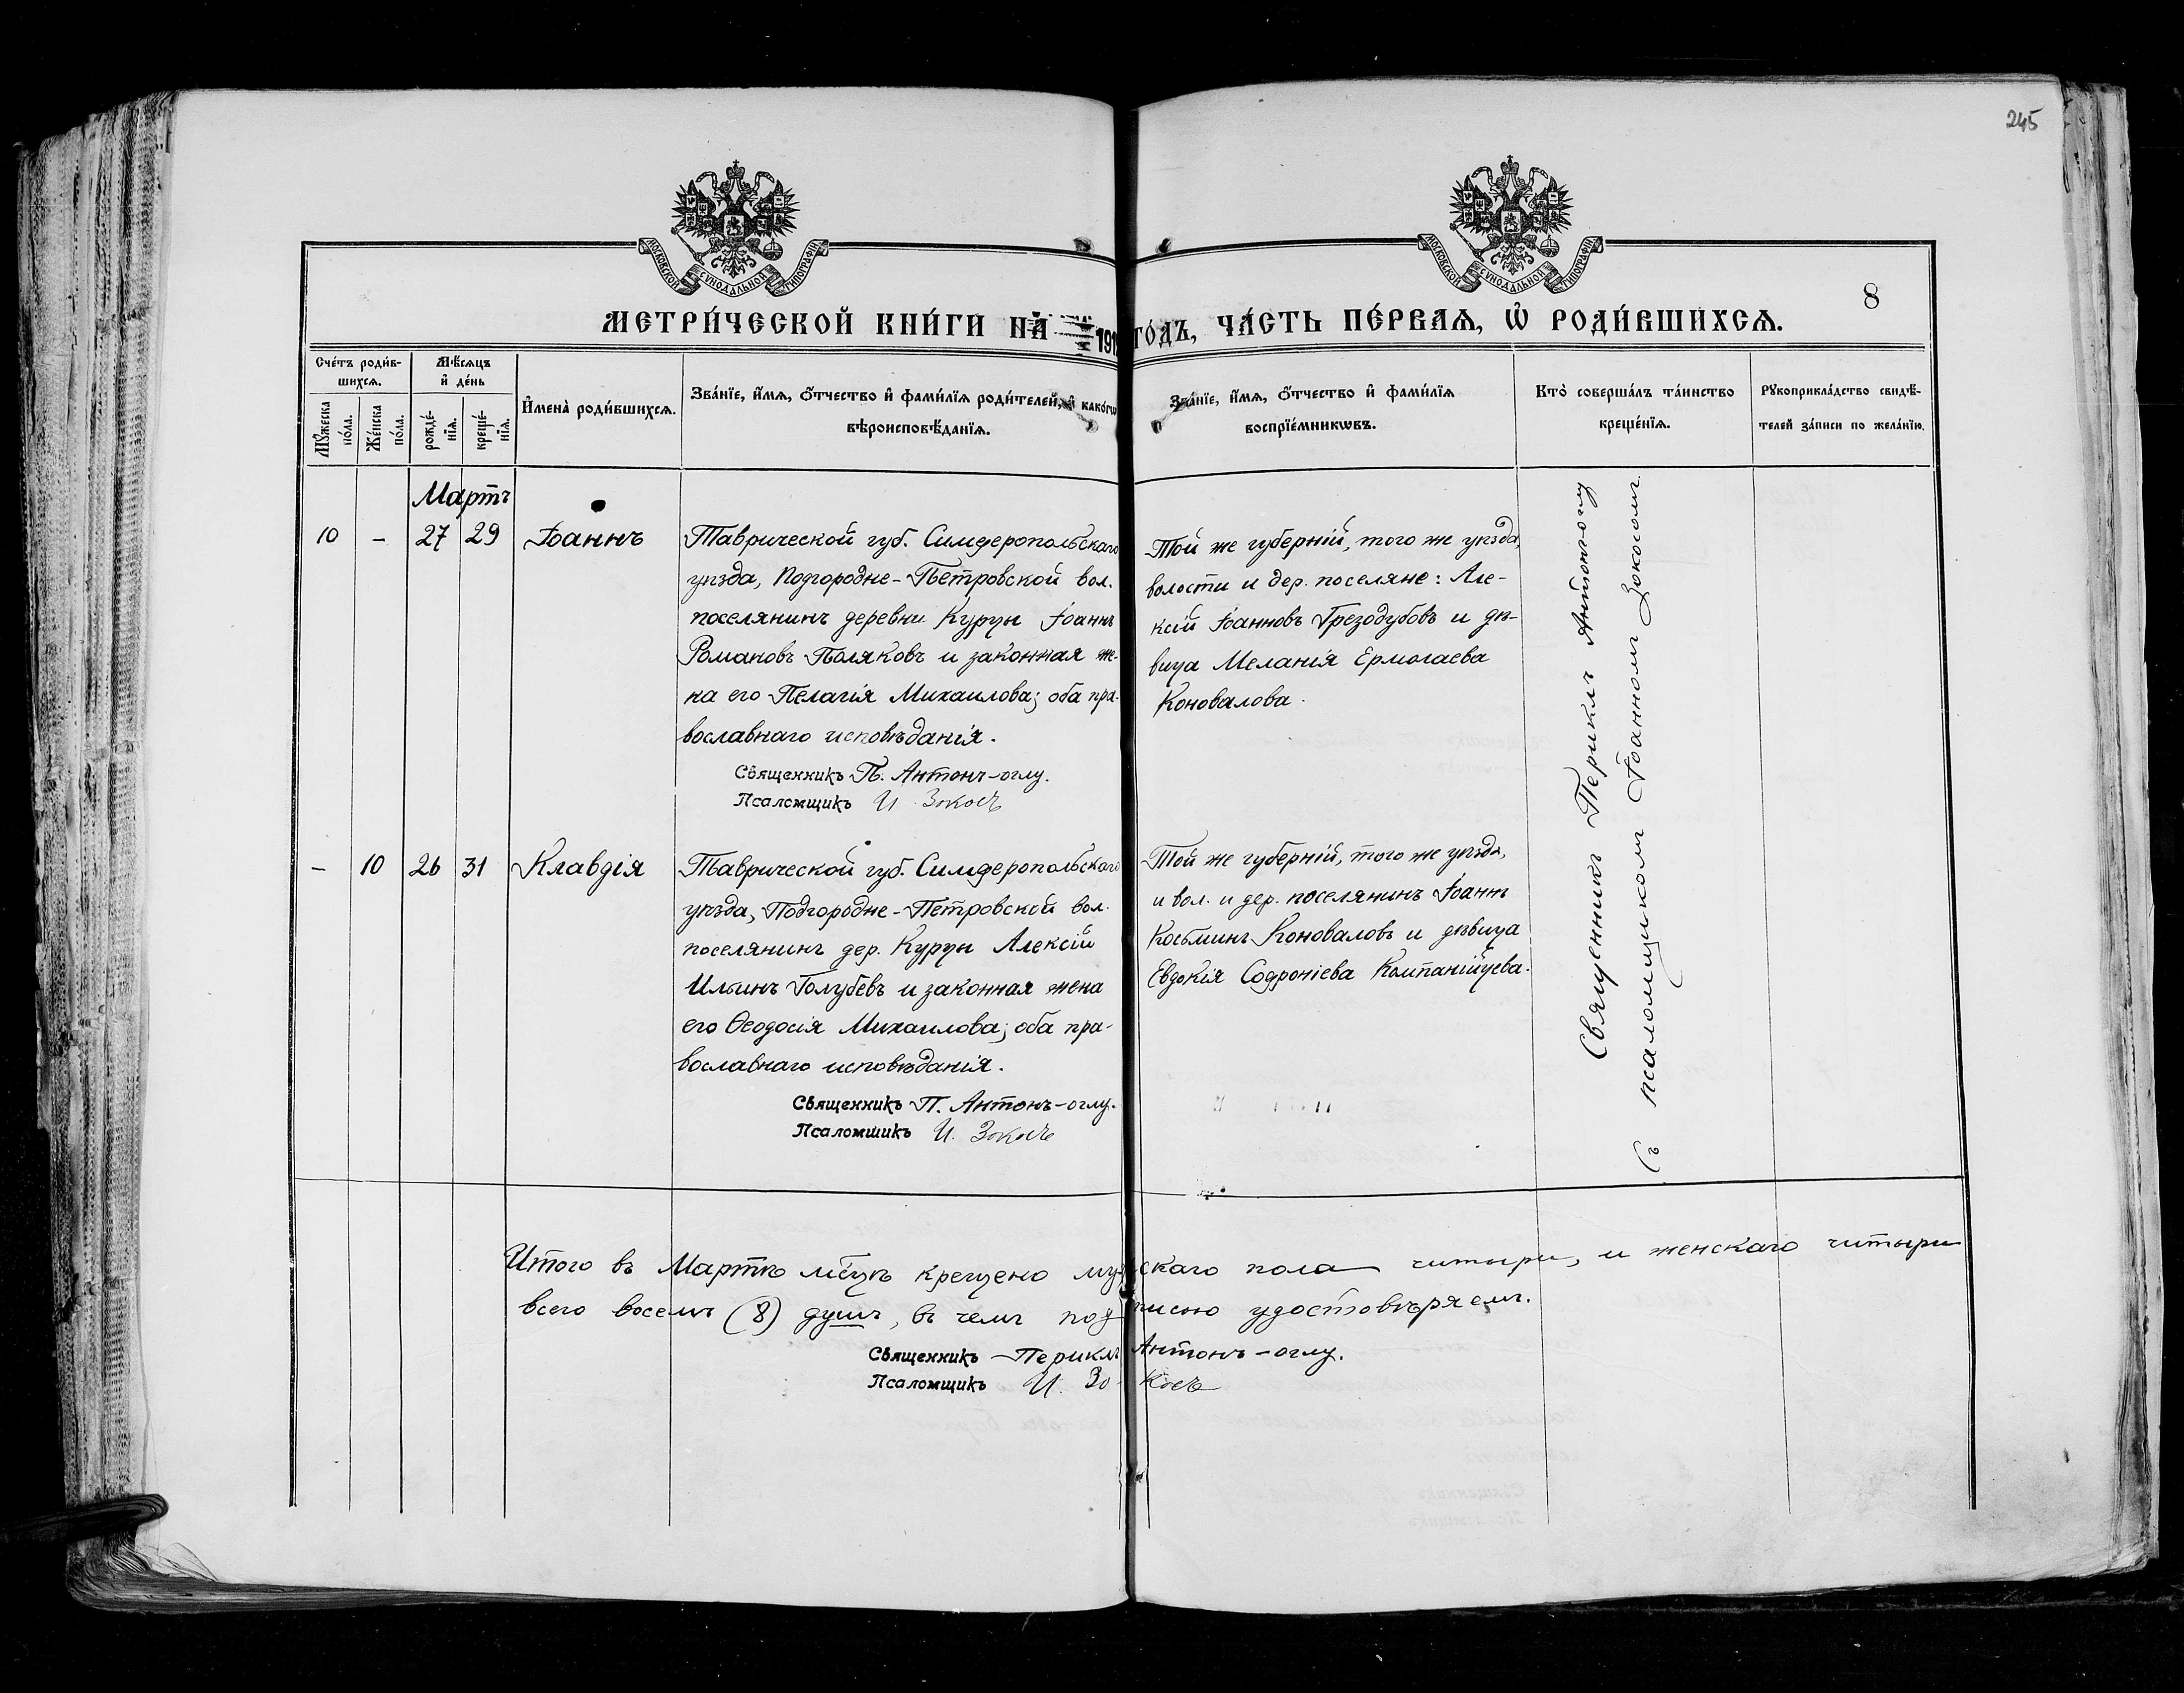 245
МОСКОВСКОЙ СѴНОДАЛЬНОЙ ТИПОГРАФІИ
МОСКОВСКОЙ СѴНОДАЛЬНОЙ ТИПОГРАФІИ
8
МЕТРИ́ЧЕСКОЙ КНИ́ГИ НА̀ 191 ГО́ДЪ, ЧА́СТЬ ПЕ́РВАѦ, Ѡ҆ РОДИ́ВШИХСѦ.
Сче́тъ роди́в-
шихсѧ.
Мꙋ́жеска по́ла.
Же́нска по́ла.
Мѣ́сѧцъ
и҆ де́нь
рожде́-
нїѧ.
креще́-
нїѧ.
И҆мена̀ роди́вшихсѧ.
Зва́нїе, и҆́мѧ, ѻ҆́тчество и҆ фами́лїѧ роди́телей, и҆ како́гѡ
вѣроисповѣ́данїѧ.
Зва́нїе, и҆́мѧ, ѻ҆́тчество и҆ фами́лїѧ
воспрїе́мникѡвъ.
Кто̀ соверша́лъ та́инство
креще́нїѧ.
Рꙋкоприкла́дство свидѣ́-
телей за́писи по жела́нїю.
Мартъ
10 - 27 29 Іоаннъ
Таврической губ. Симферопольскаго
уѣзда, Подгородне-Петровской вол.
поселянинъ деревни Курцы Іоаннъ
Романовъ Поляковъ и законная же-
на его Пелагія Михаилова; оба пра-
вославнаго исповѣданія.
Священникъ П. Антонъ-оглу.
Псаломщикъ И. Зокосъ
Той же губерніи, того же уѣзда,
волости и дер. поселяне: Але-
ксій Іоанновъ Грезодубовъ и дѣ-
вица Меланія Ермолаева
Коновалова.
- 10 26 31 Клавдія
Таврической губ. Симферопольскаго
уѣзда, Подгородне-Петровской вол.
поселянинъ дер. Курцы Алексій
Ильинъ Голубевъ и законная жена
его Ѳеодосія Михаилова; оба пра-
вославнаго исповѣданія.
Священникъ П. Антонъ-оглу.
Псаломщикъ И. Зокосъ
Той же губерніи, того же уѣзда,
и вол. и дер. поселянинъ Іоаннъ
Косьминъ Коноваловъ и дѣвица
Евдокія Софроніева Компанійцева.
Священникъ Периклъ Антонъ-оглу
съ псаломщикомъ Іоанномъ Зокосомъ.
Итого въ Мартѣ мѣцѣ крещено мужскаго пола читыри, и женскаго читыри
всего восемъ (8) душъ, въ чемъ подписью удостовѣряемъ.
Священникъ Периклъ Антонъ-оглу.
Псаломщикъ И. Зокосъ